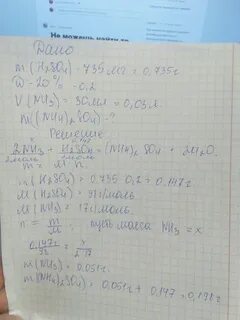 Не можешь найти то
Дано
m(H₂SO₄) - 735мг = 0,735г
W = 20% - 0,2
V(NH₃) = 30мл = 0,03л
m(NH₄)₂SO₄ - ?
Решение
2NH₃ + H₂SO₄ = (NH₄)₂SO₄ +
2моль
m = n
m(H₂SO₄) = 0,735 · 0,2 = 0,147г
M(H₂SO₄) = г/моль
M(NH₃) = 17г/моль
n = m/M, пусть масса NH₃ = x
0,147г
m(NH₃) = 0,051г
m(NH₄)₂SO₄ = 0,051г + 0,147 = 0,198г